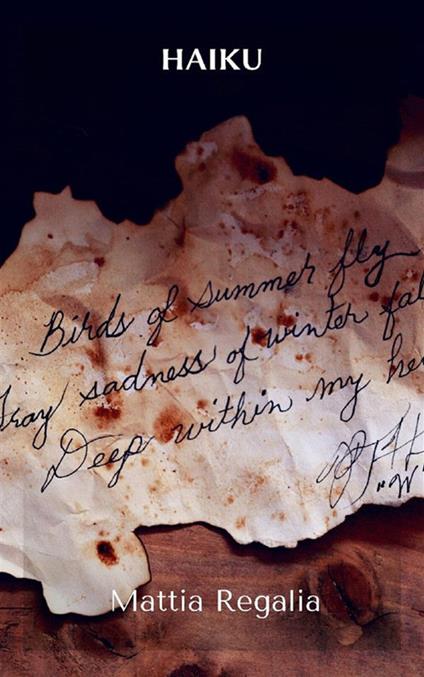 HAIKU
Birds of summer fly
Gray sadness of winter fal
Deep within my hea
"W
Mattia Regalia